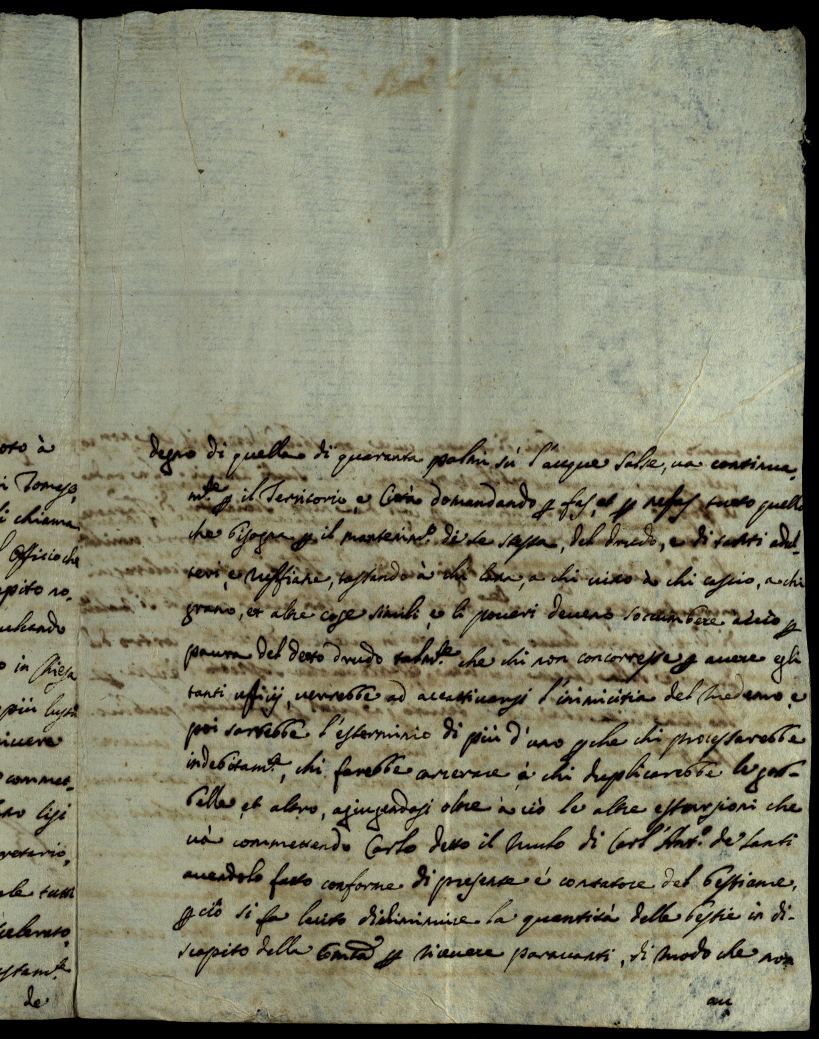 oto à
Tomaso,
li chiama
l'Officio che
apito no,
ultando
o in Chiesa
più lus
icuere
commet,
cretario,
ale tutti
scelerato,
ustam.te
de
degno di quella di quaranta palmi sù l'acque salse, va continua,
m.te p il Territorio, e Città domandando p fas, et p nefas tutto quello
che bisogna p il mantenim.to di se stessa, del drudo, e di tanti adul-
teri, e ruffiane, tassando à chi lana, a chi vino à chi cascio, a chi
grano, et altre cose simili, e li poveri devono soccumbere a ciò p
paura del detto drudo talm.te che chi non concorresse p avere egli
tanti ufficij, verrebbe ad accattivarsi l'inimicitia del medemo, e
poi sarrebbe l'esterminio di più d'uno p che chi processarebbe
indebitam.te, chi farebbe carcerare, à chi duplicarebbe le gab-
belle, et altro, agiugendosi oltre à ciò le altre estorsioni che
và commettendo Carlo detto il Mulo di Carl'Ant.o de Santi
avendolo fatto conforme di presente é contatore del bestiame,
p ciò si fa lecito di diminuire la quantità delle bestie in di-
scapito della Com.tà p ricevere paraguanti, di modo che non
au